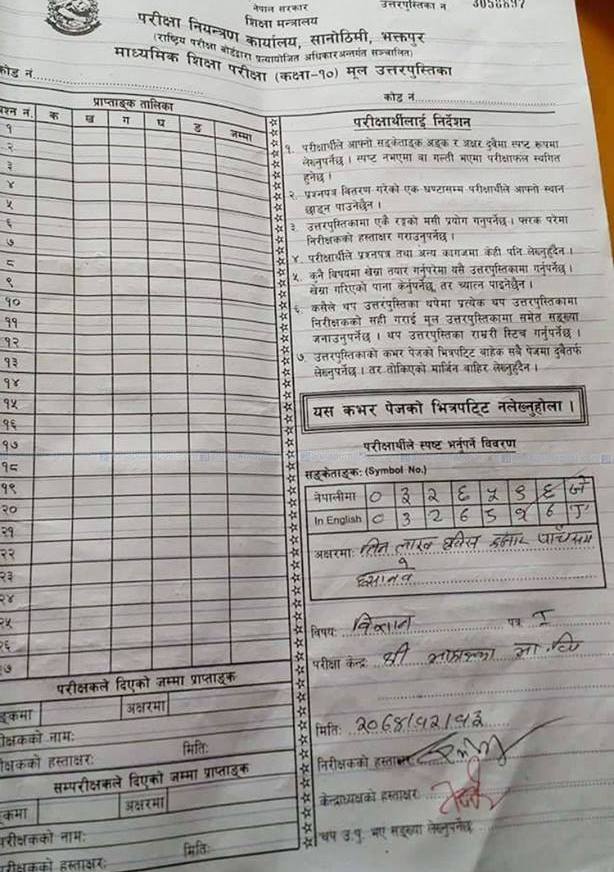 नेपाल सरकार
उत्तरपुस्तिका न
3058897
शिक्षा मन्त्रालय
परीक्षा नियन्त्रण कार्यालय, सानोठिमी, भक्तपुर
(राष्ट्रिय परीक्षा बोर्डद्वारा प्रत्यायोजित अधिकारअन्तर्गत सञ्चालित)
माध्यमिक शिक्षा परीक्षा (कक्षा-१०) मूल उत्तरपुस्तिका
कोड नं.
प्राप्ताङ्क तालिका
प्रश्न नं. क ख ग घ ङ जम्मा
१
२
३
४
५
६
७
८
९
१०
११
१२
१३
१४
१५
१६
१७
१८
१९
२०
२१
२२
२३
२४
२५
२६
२७
परीक्षकले दिएको जम्मा प्राप्ताङ्क
अङ्कमा अक्षरमा
परीक्षकको नाम:
परीक्षकको हस्ताक्षर: मिति:
सम्परीक्षकले दिएको जम्मा प्राप्ताङ्क
अङ्कमा अक्षरमा
परीक्षकको नाम:
परीक्षकको हस्ताक्षर: मिति:
कोड नं.
परीक्षार्थीलाई निर्देशन
१. परीक्षार्थीले आफ्नो सङ्केताङ्क अङ्क र अक्षर दुवैमा स्पष्ट रूपमा
लेख्नुपर्नेछ । स्पष्ट नभएमा वा गल्ती भएमा परीक्षाफल स्थगित
हुनेछ ।
२. प्रश्नपत्र वितरण गरेको एक घण्टासम्म परीक्षार्थीले आफ्नो स्थान
छाड्न पाउनेछैन ।
३. उत्तरपुस्तिकामा एकै रङ्गको मसी प्रयोग गर्नुपर्नेछ । फरक परेमा
निरीक्षकको हस्ताक्षर गराउनुपर्नेछ ।
४. परीक्षार्थीले प्रश्नपत्र तथा अन्य कागजमा केही पनि लेख्नुहुँदैन ।
५. कुनै विषयमा खेस्रा तयार गर्नुपरेमा यसै उत्तरपुस्तिकामा गर्नुपर्नेछ ।
खेस्रा गरिएको पाना केर्नुपर्नेछ, तर च्यात्न पाइनेछैन ।
६. कसैले थप उत्तरपुस्तिका थपेमा प्रत्येक थप उत्तरपुस्तिकामा
निरीक्षकको सही गराई मूल उत्तरपुस्तिकामा समेत सङ्ख्या
जनाउनुपर्नेछ । थप उत्तरपुस्तिका राम्ररी स्टिच गर्नुपर्नेछ ।
७. उत्तरपुस्तिकाको कभर पेजको भित्रपट्टि बाहेक सबै पेजमा दुवैतर्फ
लेख्नुपर्नेछ । तर तोकिएको मार्जिन बाहिर लेख्नुहुँदैन ।
यस कभर पेजको भित्रपट्टि नलेख्नुहोला ।
परीक्षार्थीले स्पष्ट भर्नुपर्ने विवरण
सङ्केताङ्क: (Symbol No.)
नेपालीमा ० ३ २ ६ ५ ९ ६
In English 0 3 2 6 5 9 6 J
अक्षरमा: तिन लाख छब्बिस हजार पाँचसय
छयानब्बे
विषय: विज्ञान पत्र I
परीक्षा केन्द्र: श्री मा.वि
मिति: २०७४/१२/१३
निरीक्षकको हस्ताक्षर
केन्द्राध्यक्षको हस्ताक्षर
थप उ.पु. भए सङ्ख्या लेख्नुपर्नेछ